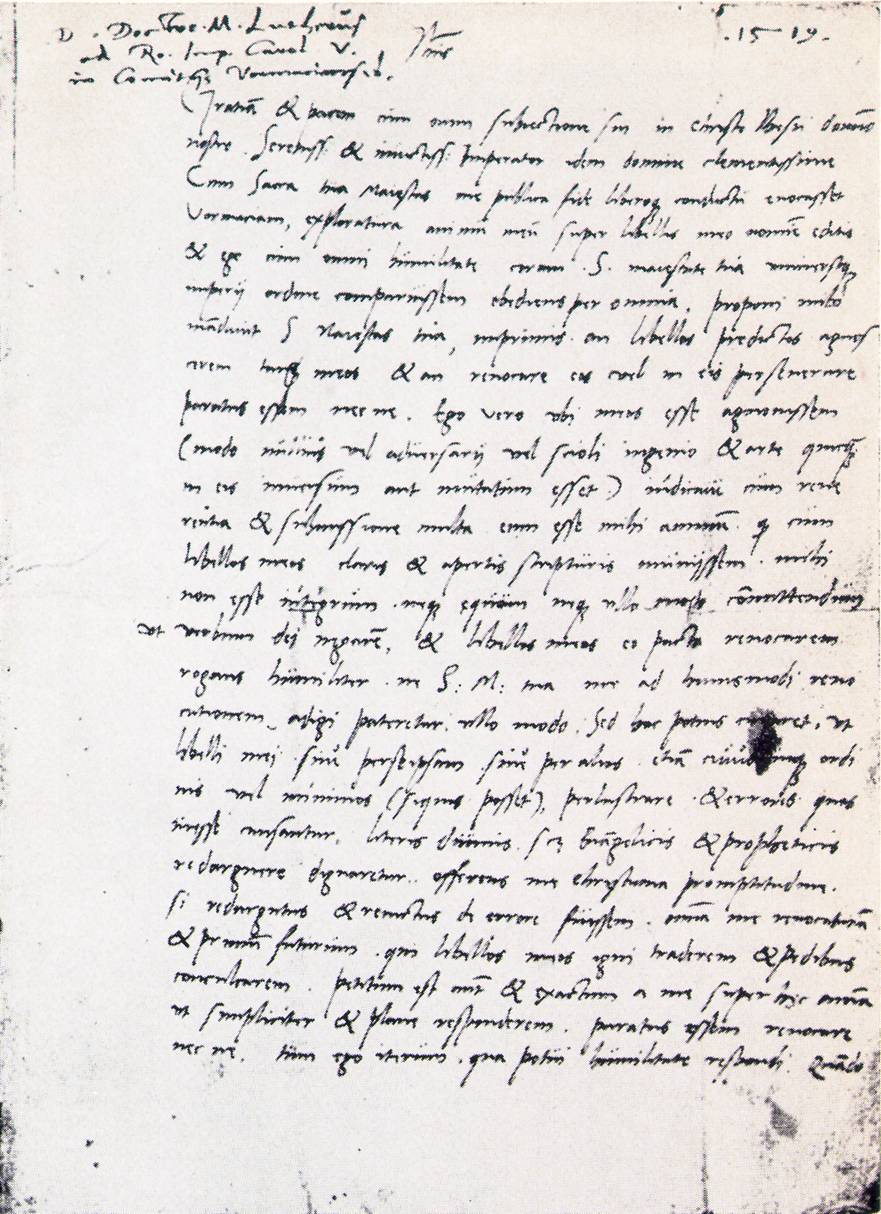 D. Doctor M. Lutherus
ad Ro. Imp. Carol V.
in Comitijs
.1519.
Gratiā & pacem cum omni subiectione sui in Christo Ihesu domīo
nostro. Sereniss: & inuictiss: Imperator idem domine clementissime
Cum Sacra tua Maiestas me publica fide liberoq conductu euocasset
Vormaciam, exploratura animū meū super libellis meo nomīe editis
& ego cum omni humilitate coram .S. maiestate tua universoq
imperij ordine comparuissem obediens per omnia, proponi mihi
mandauit S Maiestas tua, inprimis an libellos predictos agnos
cerem tanq meos & an reuocare eos vel in eis perseuerare
paratus essem nec ne. Ego vero ubi meos esse agnouissem
(modo nullius vel aduersarij vel scioli ingenio & arte quicq
in eis inuersum aut mutatum esset) indicaui cum reue
rentia & submissione multa eum esse mihi animum. q cum
libellos meos claris & apertis scripturis muniissem . mihi
non esse integrum . neq equum neq ullo modo cōmittendum
ut verbum dei negarē, & libellos meos eo pacto reuocarem
rogans humiliter . ne S: M: tua me ad huiusmodi reuo
cationem adigi pateretur ullo modo. Sed hoc potius curaret, ut
libelli mei siue per seipsam siue per alios . etiā ordi
nis vel minimos (siquis posset), perlustrare & errores quos
inesse causantur, literis diuinis. scz Euāgelicis & propheticis
redarguere dignaretur.. offerens me christiana promptitudine.
si redargutus & reuictus de errore fuissem . omīa me reuocaturū
& primū futurum . qui libellos meos igni traderem & pedibus
conculcarem . petitum est aut & exactum a me super hęc omīa
ut simpliciter & plane responderem . paratus essem reuocare
nec ne. tum ego iterum . qua potui humilitate respondi. Quādo